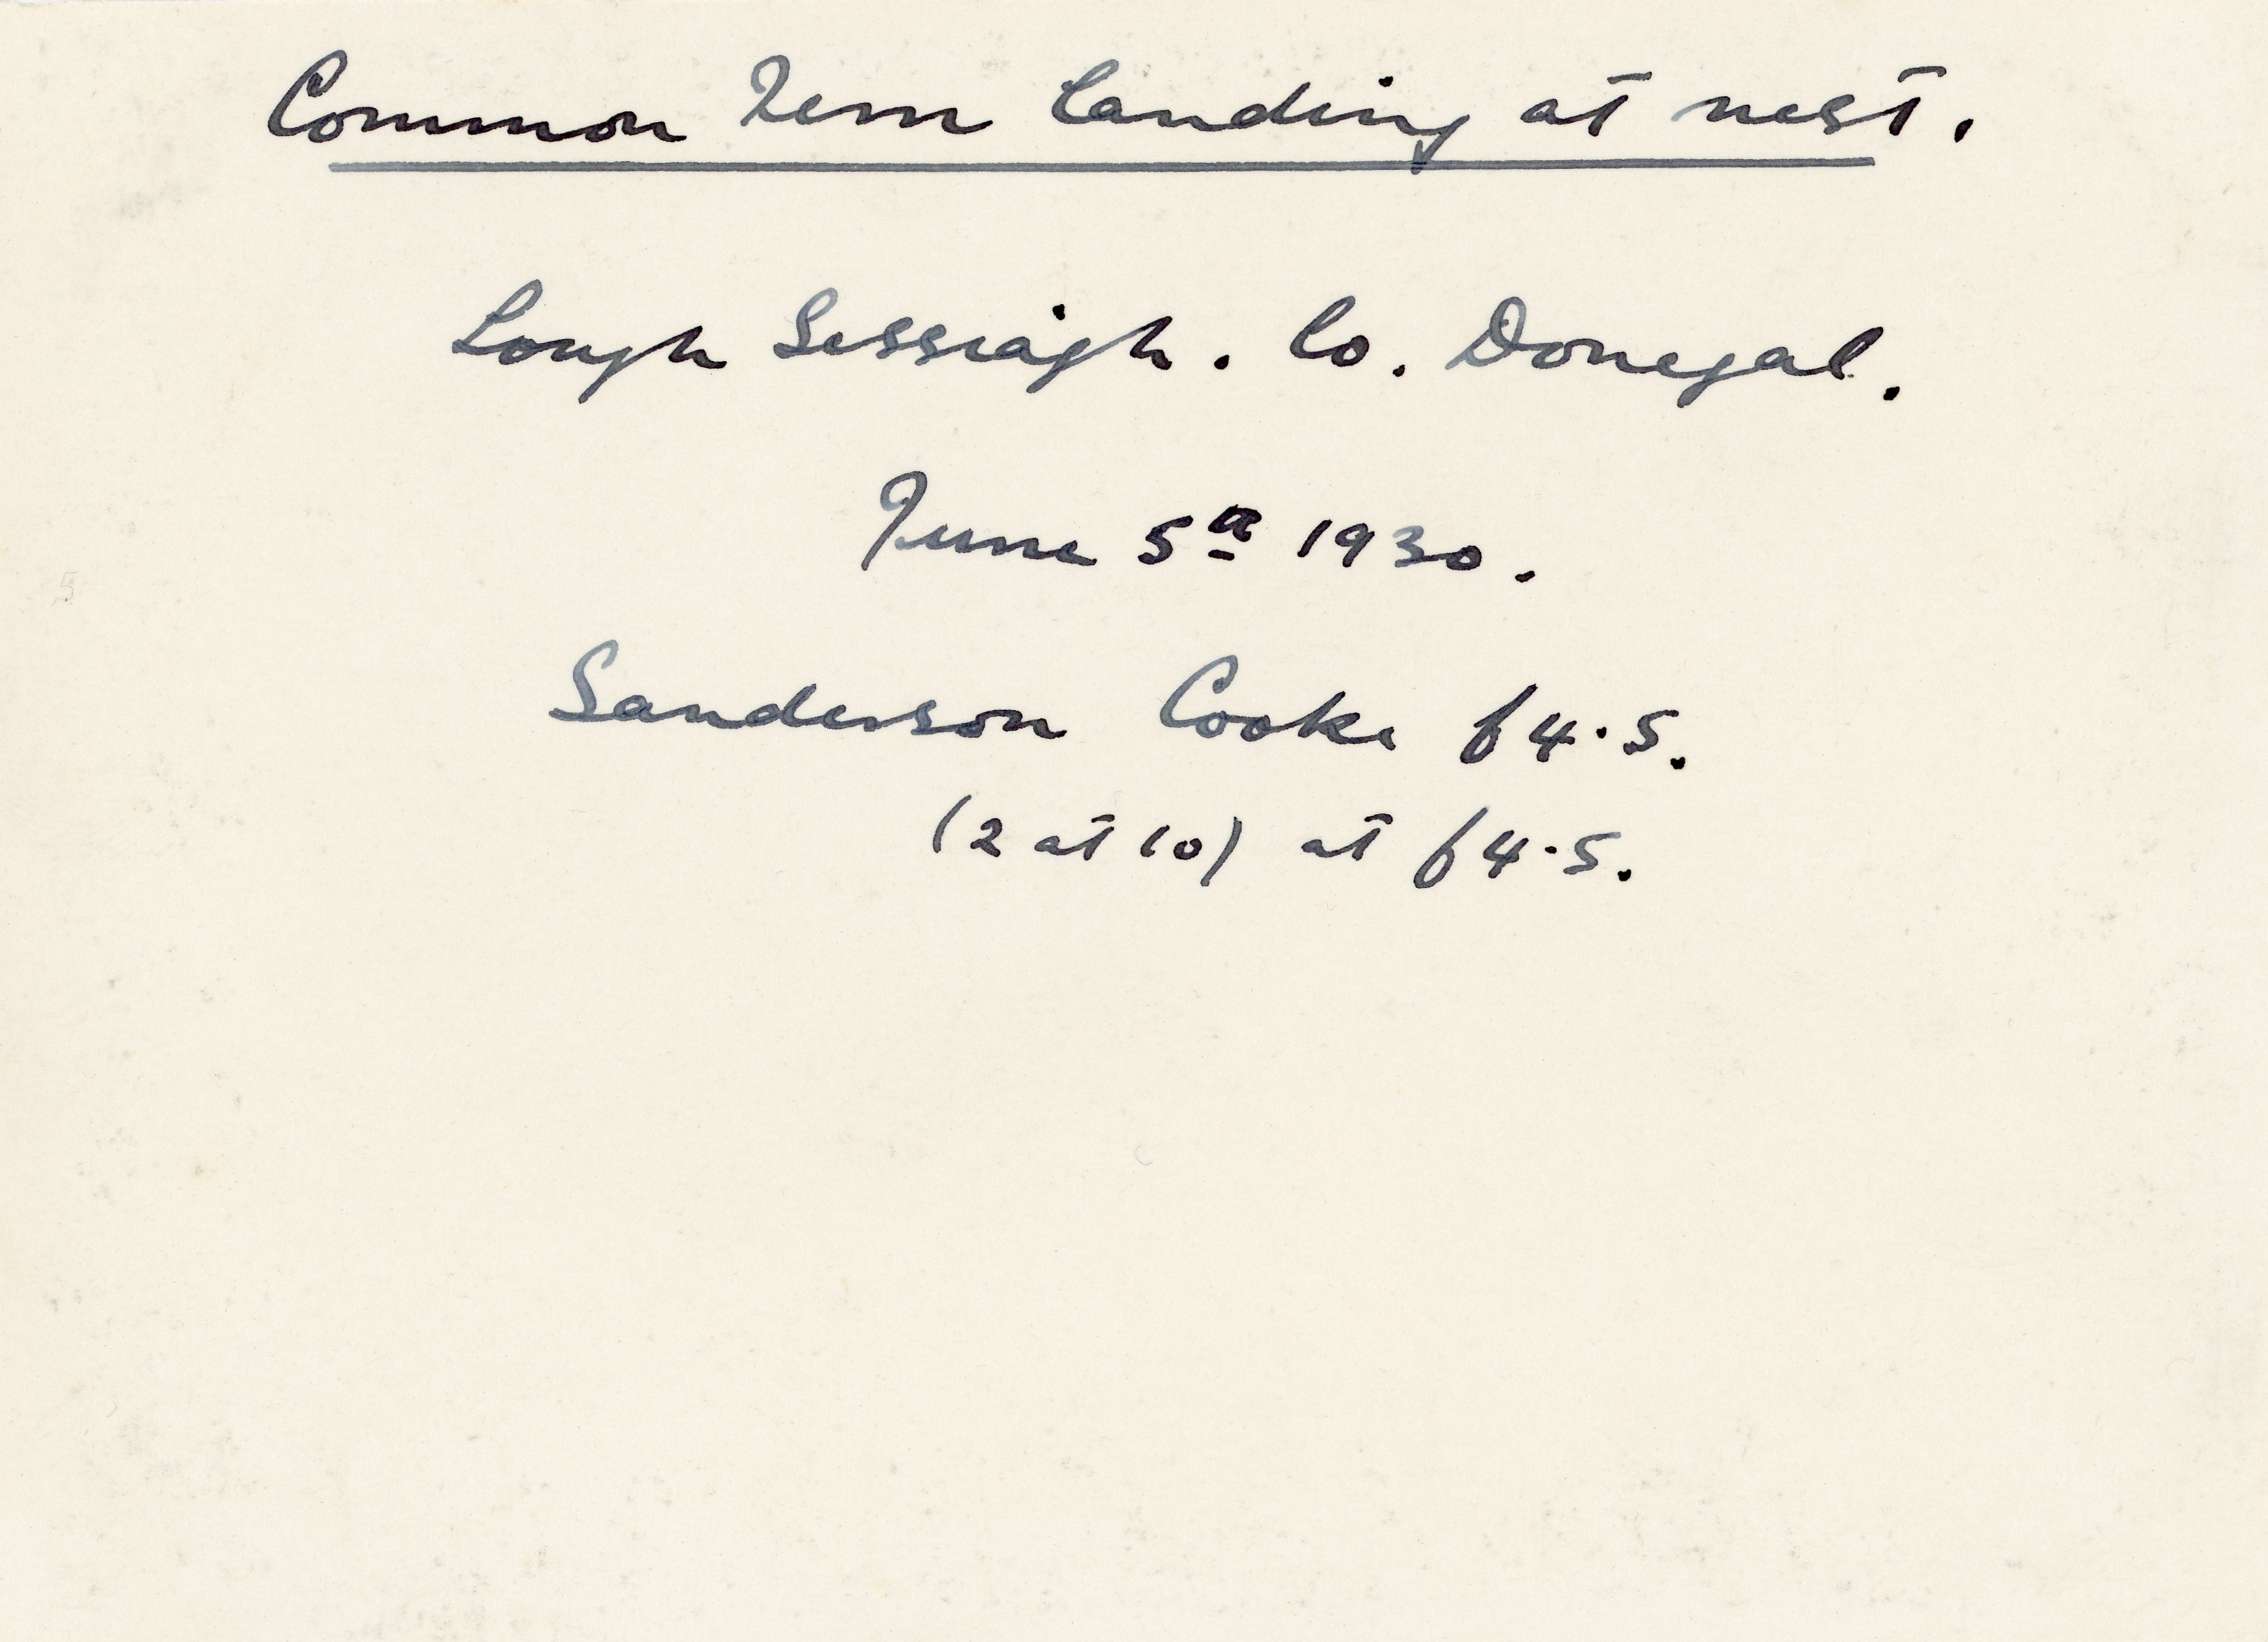 Common Tern landing at nest.
Lough Sessiagh. Co. Donegal.
June 5th 1930.
5
Sanderson Cooke f4.5.
(2 at 10) at f4.5.